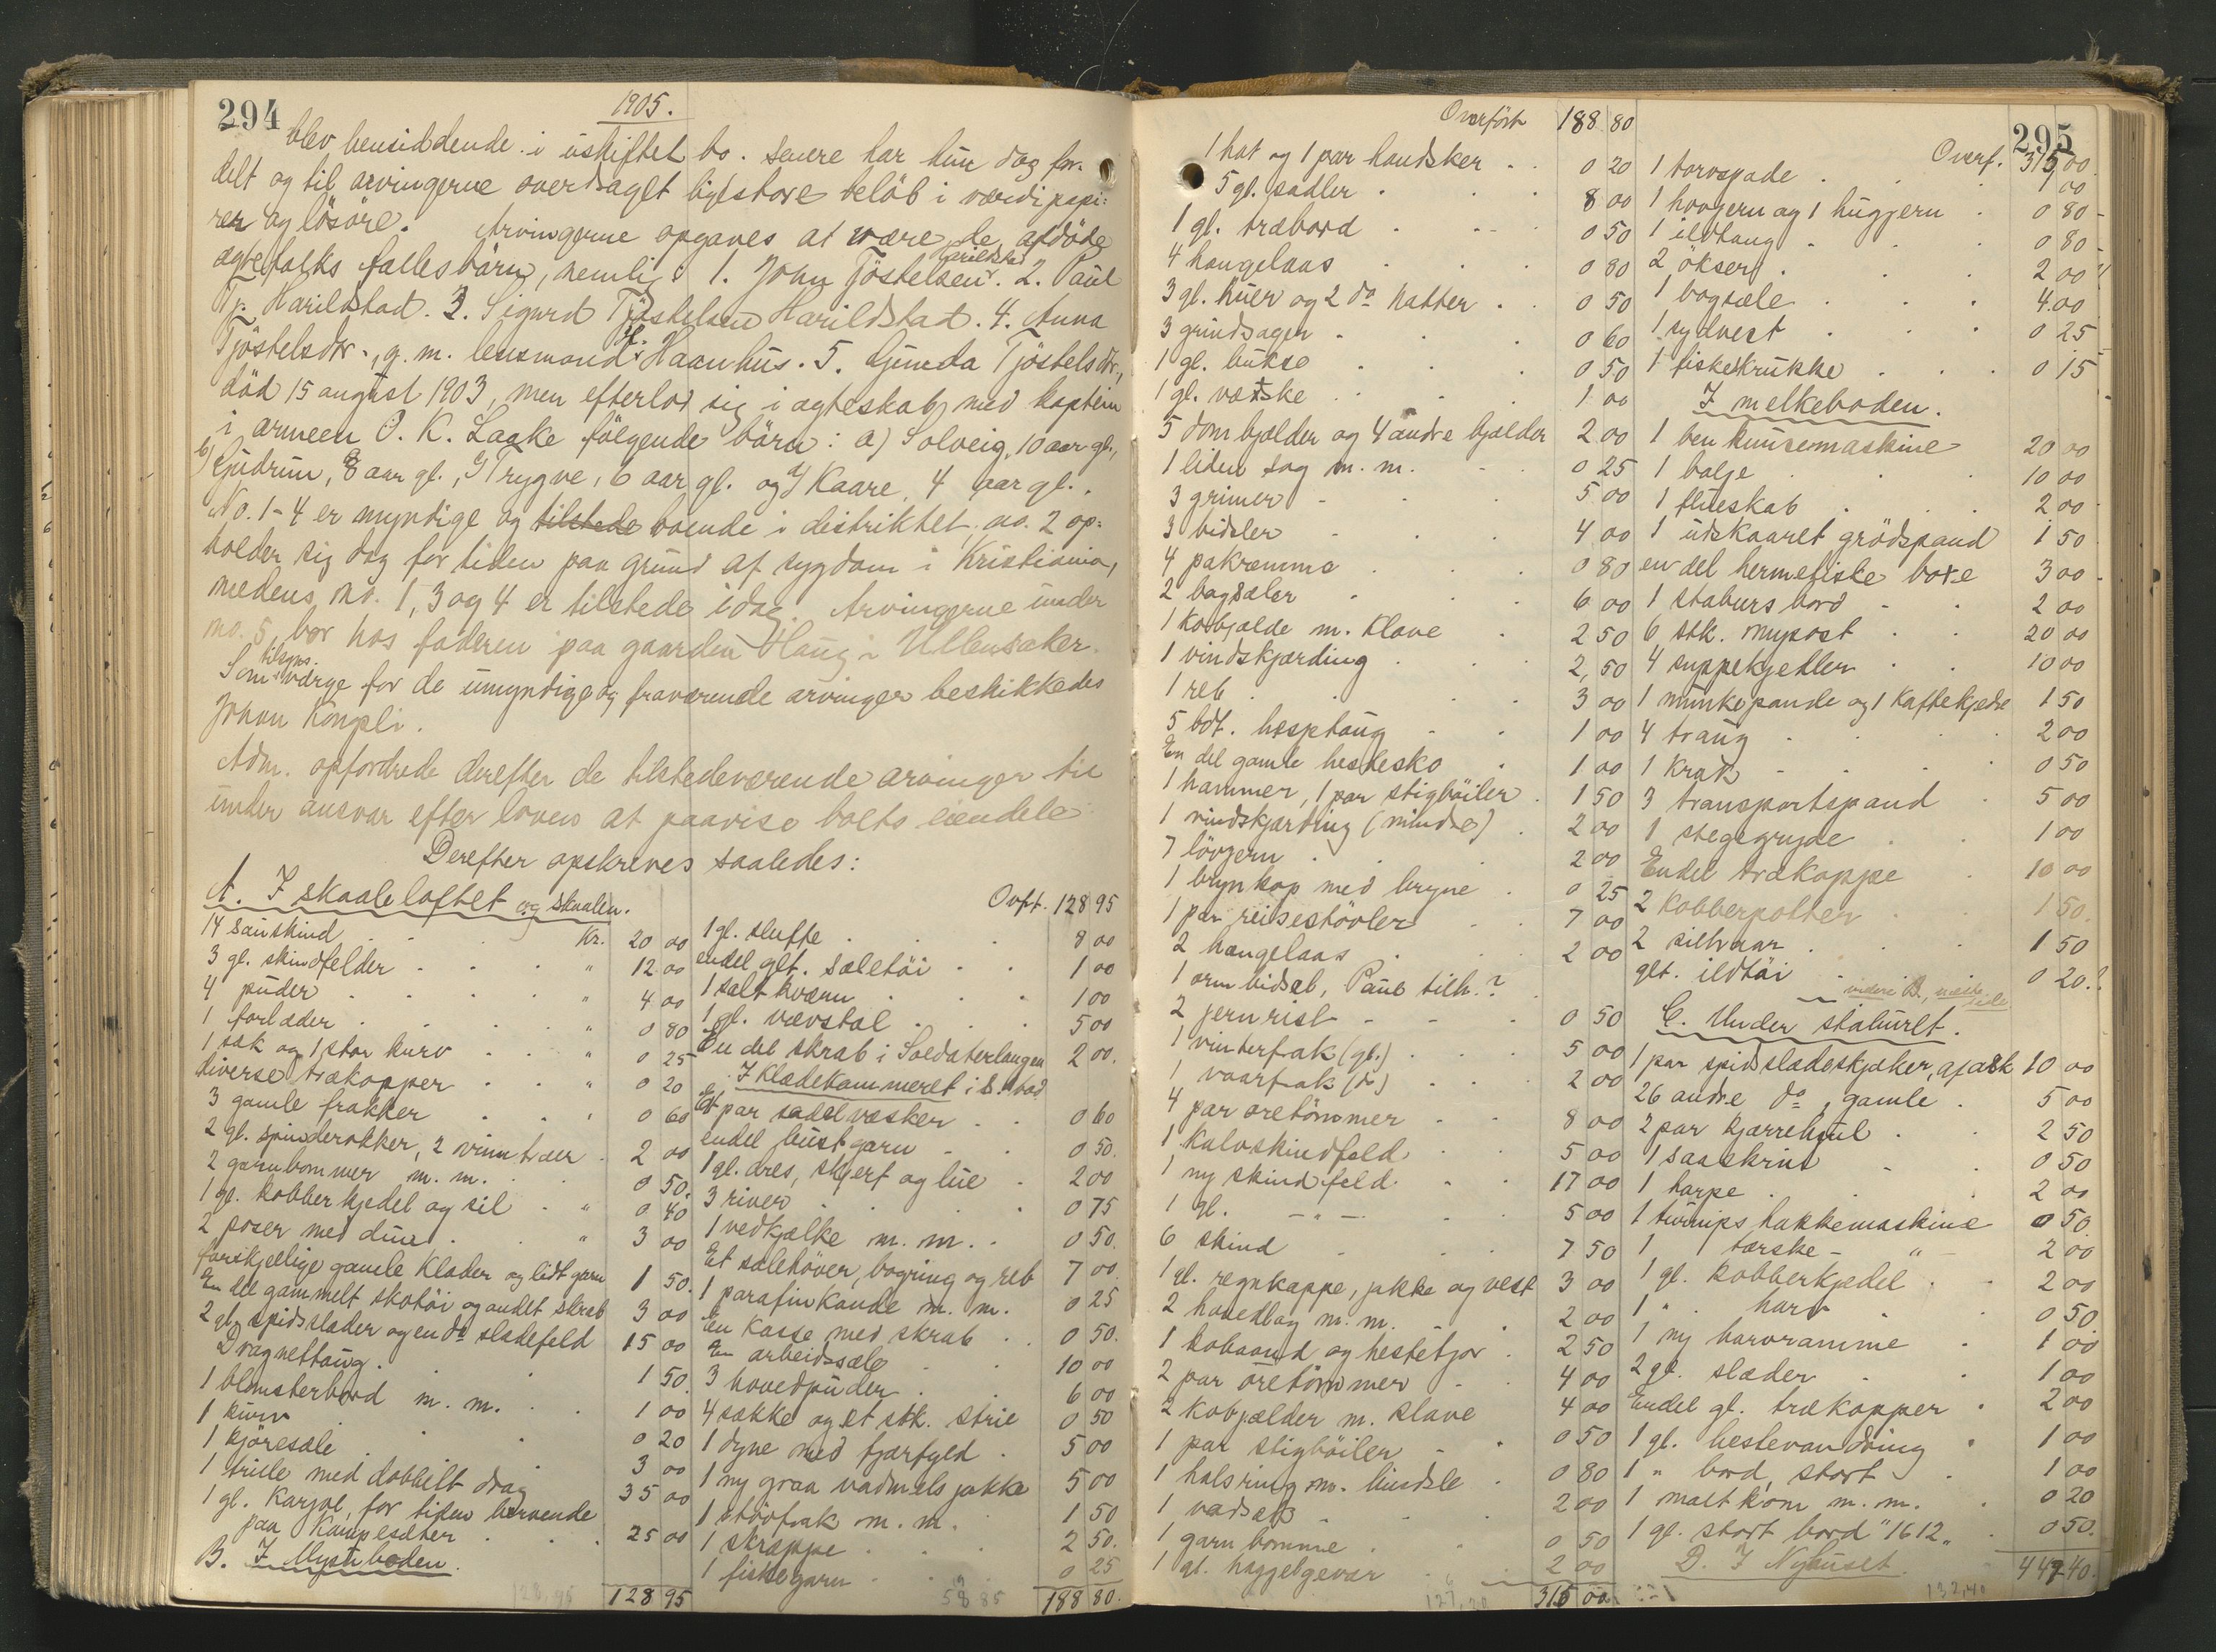 294
1905.
blev hensiddende i uskiftet bo. Senere har hun dog for-
delt og til arvingerne overdraget ligestore beløb i værdipapi-
rer og løsøre. Arvingerne opgaves at være de afdøde
ægtefolks fællesbørn, nemlig: 1. John Tjøstelsen Harildstad. 2. Paul
Tj. Harildstad. 3. Sigurd Tjøstelsen Harildstad. 4. Anna
Tjøstelsdtr., g. m. lensmand Haanhus. 5. Gunda Tjøstelsdtr.,
død 15 august 1903, men efterlod sig i ægteskab med kaptein
i armeen O. K. Laake følgende børn: a) Solveig, 10 aar gl.,
b) Gudrun, 8 aar gl., c) Trygve, 6 aar gl. og d) Kaare, 4 aar gl.
No. 1-4 er myndige og tilstede boende i distriktet, no. 2 op-
holder sig dog for tiden paa grund af sygdom i Kristiania,
medens no. 1, 3 og 4 er tilstede idag. Arvingerne under
no. 5 bor hos faderen paa gaarden Haug i Ullensaker.
Som tilsyns-værge for de umyndige og fraværende arvinger beskikkedes
Johan Kongsli.
Adm. opfordrede derefter de tilstedeværende arvinger til
under ansvar efter loven at paavise boets eiendele
Derefter opskreves saaledes:
A. I skaaleloftet og skaalen.
14 sauskind Kr. 20 00
3 gl. skindfelder " 12 00
4 puder " 4 00
1 forlæder " 0 80
1 sæk og 1 stor kurv " 0 25
diverse trækopper " 0 20
3 gamle frakker " 0 60
2 gl. spinderokker, 2 vinntrær 2 00
2 garnbommer m. m. 0 50.
1 gl. kobberkjedel og sil " 0 40
2 poser med dun " 3 00
forskjellige gamle klæder og lidt garn 1 50.
En del gammelt skotøi og andet skrab 3 00
2 gl. spidsslæder og en do slædefeld 15 00
Dragnettaug. 1 50.
1 blomsterbord m. m. 1 00
1 kurv 0 20
1 kjøresæle 3 00
1 trille med dobbelt drag 35 00
1 gl. karjol, for tiden beroende
paa Kampesæter 25 00
B. I Mystuboden.
128 95
Ovft. 128 95
1 gl. sluffe 8 00
endel glt. sæletøi 1 00
1 salt kværn 1 00
1 gl. vævstol 5 00
En del skrab i Soldaterlaugen 2 00.
I Klædekammeret i S.bod
Et par sadelvæsker 0 60
endel bustgarn 0 50.
1 gl. dres, skjerf og lue 2 00
3 river 0 75
1 vedkjælke m. m. 0 50.
Et sælehøver, bogring og reb 7 00
1 parafinkande m. m. 0 25
En kasse med skrab 0 50.
En arbeidssæle 10 00
3 hovedpuder 6 00
4 sække og et stk. strie 0 50
1 dyne med fjærfyld 5 00
1 ny graa vadmels jakke 5 00
1 støvfrak m. m. 1 50
1 skræppe 2 50.
1 fiskegarn 0 25
188 80.
Overført 188 80
1 hat og 1 par handsker 0 20
5 gl. sadler 8 00
1 gl. træbord 0 50
4 hængelaas 0 80
3 gl. huer og 2 do hatter 0 50
3 grindsager 0 60
1 gl. bukse 0 50
1 gl. væske 1 00
5 dombjælder og 4 andre bjælder 2 00
1 liden sag m. m. 0 25
3 grimer 5 00
3 bidsler 4 00
4 pakræmme 0 80
2 bagsæler 6 00
1 kobjælde m. klave 2 50
1 vindskjærding 2,50
1 reb 3 00
5 bdt. hesjetaug 1 00
En del gamle hestesko 1 00
1 hammer, 1 par stigbøiler 1 50
1 vindskjærding (mindre) 2 00
7 løvgern 2 00
1 brynkop med bryne 0 25
1 par reisestøvler 7 00
2 hængelaas 2 00
1 orm bidsel, Paul tilh.?
2 jernrist 0 50
1 vinterfrak (gl.) 5 00
1 vaarfrak (do) 2 00
4 par oretømmer 8 00
1 kalvskindfeld 5 00
1 ny skindfeld 17 00
1 gl. — " — 5 00
6 skind 7 50
1 gl. regnkappe, jakke og vest 3 00
2 hovedlag m. m. 2 00
1 kobaand og hestetjor 2 50
2 par oretømmer 4 00
2 kobjælder m. klave 4 00
1 par stigbøiler 0 50
1 halsring m. bindsle 0 80
1 vadsæk 2 00
1 garnbomme 0 50
1 gl. haggelgevær 2 00
315 00
295
Overf. 315,00
1 torvspade 1 00
1 hovgern og 1 hugjern 0 80
1 ildtang 0 80
2 økser 2 00
1 bogsæle 4 00
1 sydvest 0 25
1 fiskekrukke 0 15
I melkeboden.
1 benknusemaskine 20 00
1 balje 10 00
1 flueskab 2 00
1 udskaaret grødspand 1 50
en del hermetiske boxe 3 00
1 stabursbord 2 00
6 stk. mysost 20 00
4 suppekjedler 10 00
1 munkepande og 1 kaffekjedel 1 50
4 traug 2 00
1 krak 0 50
3 transportspand 5 00
1 stegegryde 1 00
Endel trækoppe 10 00
2 kobberpotter 1 50.
2 silhaar 1 50
glt. ildtøi 0 20.
videre B., næste side
C. Under staburet.
1 par spidsslædeskjæker, af ask 10 00
26 andre do, gamle 5 00
2 par kjærrehjul 2 50
1 saaskrin 0 50
1 harpe 2 00
1 turnips hakkemaskine 0 50.
1 tærske- " 2 00
1 gl. kobberkjedel 2 00
1 " harv 0 50
1 ny harvramme 1 00
2 gl. slæder 1 00
Endel gl. trækopper 2 00
1 gl. hestevandring 1 00
1 " bord, stort 1 00
1 maltkorn m. m. 0 20
1 gl. stort bord "1612" 0 50.
D. I Nyhuset.
447 40.
132,40